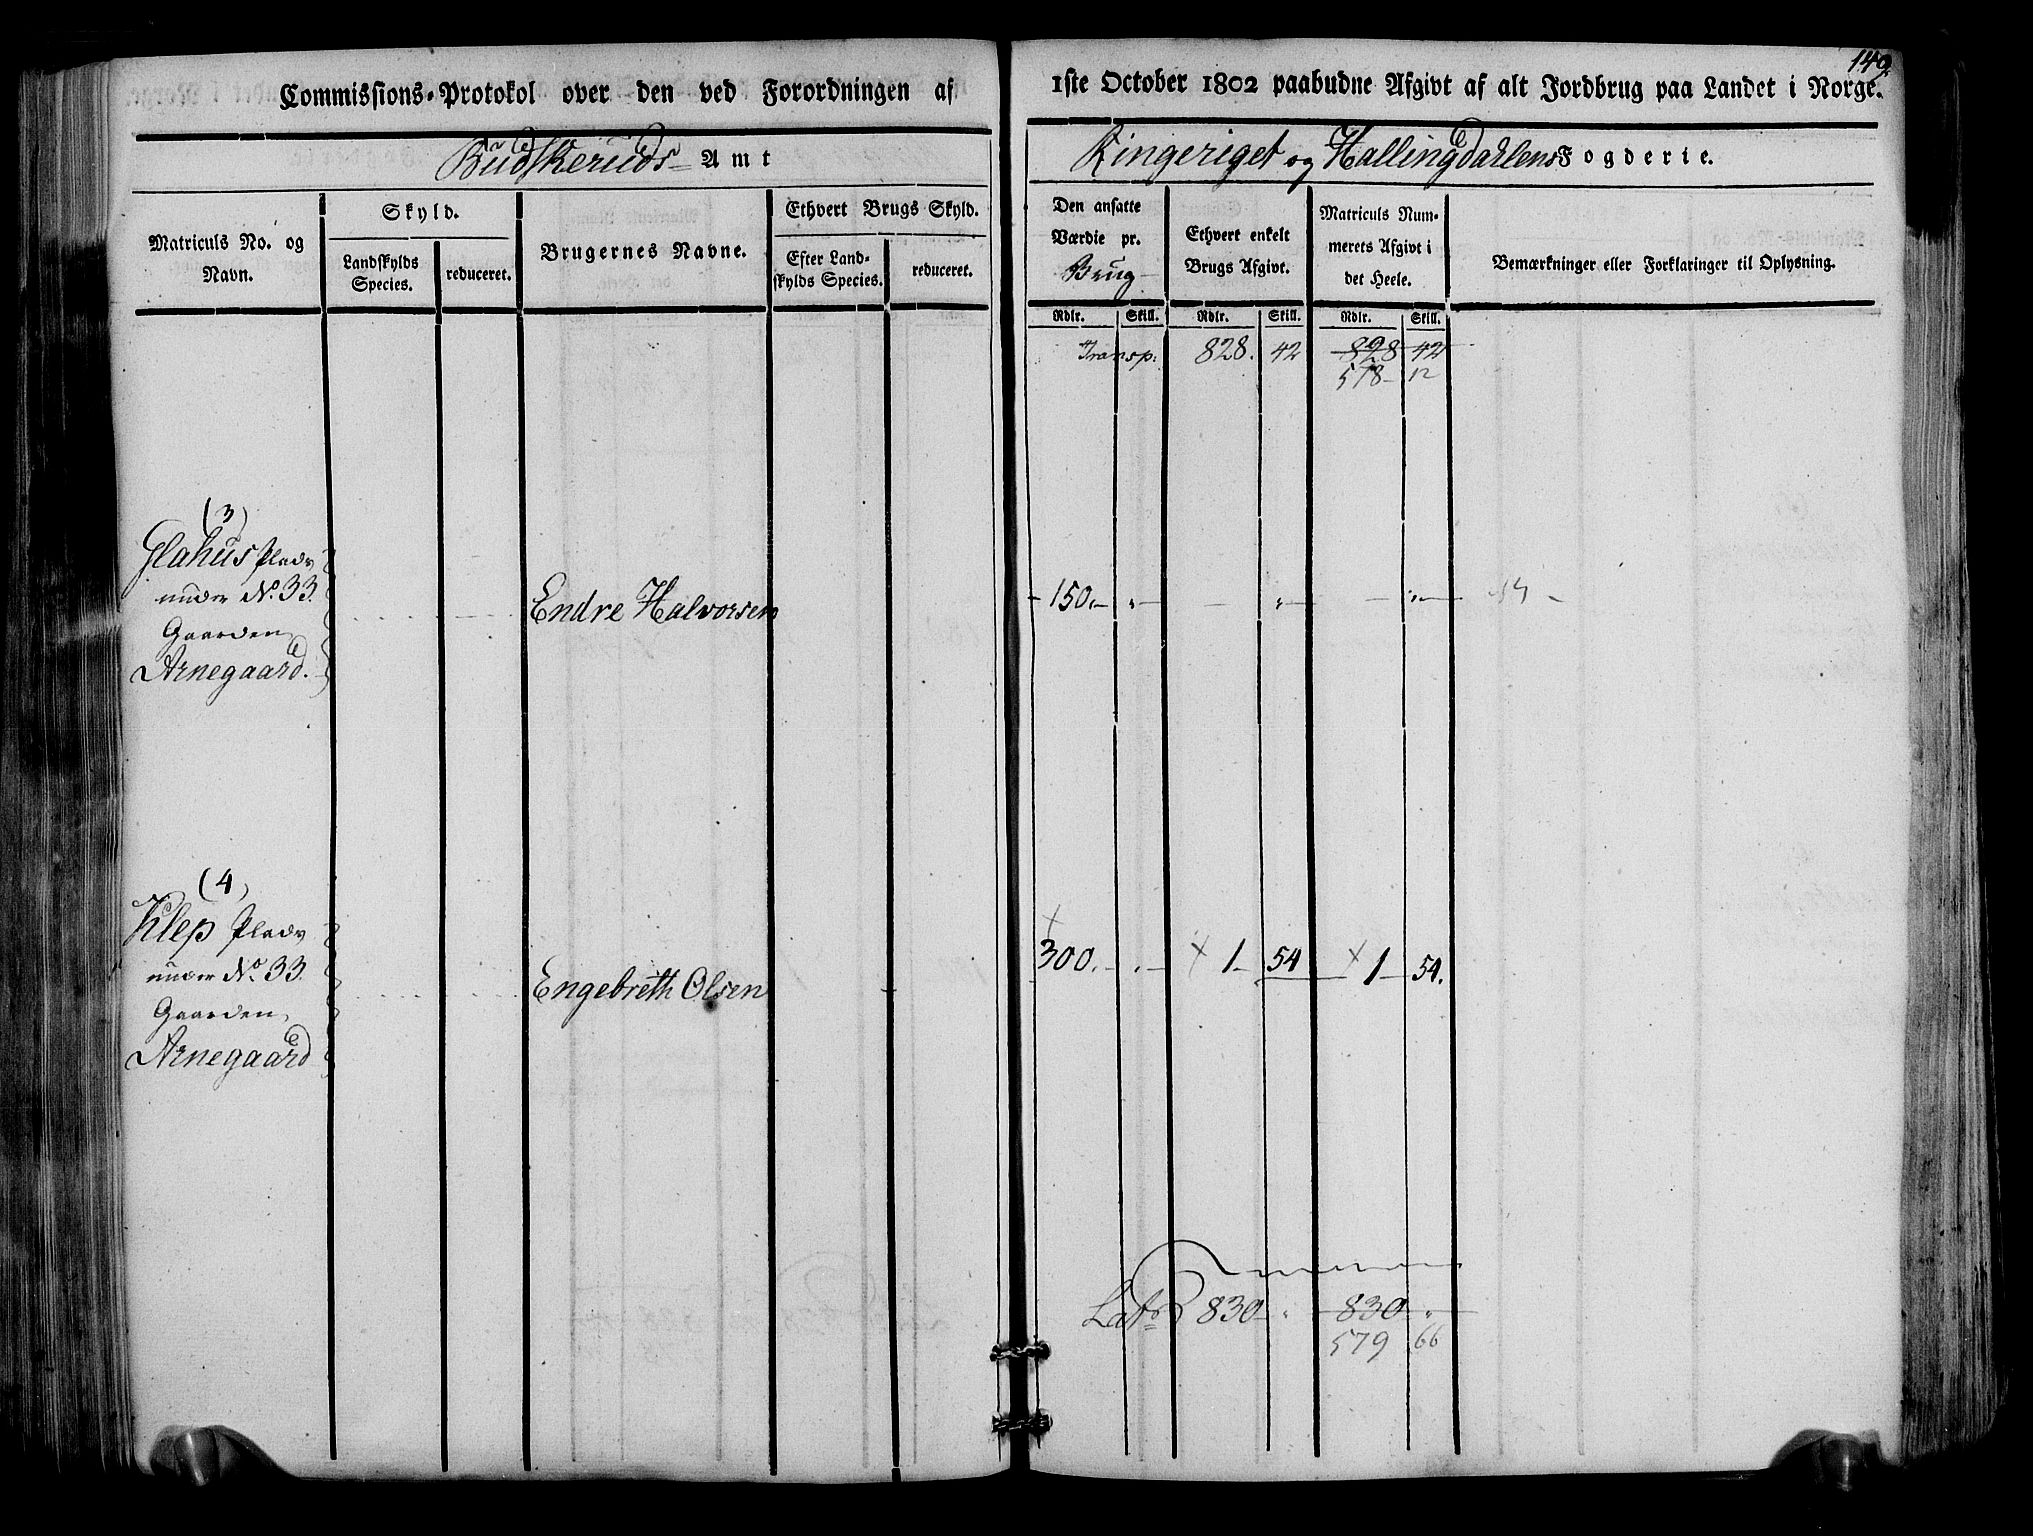 149.
Commissions-Protokol over den ved Forordningen af 1ste October 1802 paabudne Afgivt af alt Jordbrug paa Landet i Norge.
Budskeruds Amt
Ringeriget og Hallingdahlens Fogderie.
Matriculs No. og Navn.
Skyld.
Landskylds Species.
reduceret.
Brugernes Navne.
Ethvert Brugs Skyld.
Efter Landskylds Species.
reduceret.
Den ansatte Værdie pr. Brug
Ethvert enkelt Brugs Afgivt.
Matriculs Nummerets Afgivt i det Heele.
Bemærkninger eller Forklaringer til Oplysning.
Rdlr. Skill. Rdlr. Skill. Rdlr. Skill.
Transp: 828. 42 828 42
578 - 12
(3)
Glahus Plads
under No. 33.
Gaarden
Arnegaard.
Endre Halvorsen
150. - " - - " - - " -
(4)
Klep Plads
under No. 33.
Gaarden
Arnegaard
Engebreth Olsen
300. - " - 1 - 54 1 - 54.
Lats 830 - " 830 "
579 66